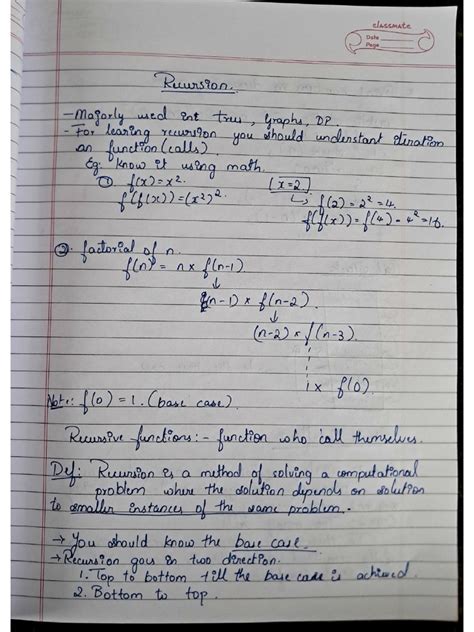 classmate
Date
Page
Recursion.
- Majorly used int trees, Graphs, DP.
- For learing recursion you should understant iteration
on function (calls)
Eg: know it using math.
① f(x) = x². [x=2]
f(f(x)) = (x²)². ↳ f(2) = 2² = 4.
f(f(x)) = f(4) = 4² = 16.
②. factorial of n.
f(n) = n x f(n-1)
↓
(n-1) x f(n-2).
↓
(n-2) x f(n-3).
1 x f(0).
Note: f(0) = 1. (base case).
Recursive functions: - function who call themselves.
Def: Recursion is a method of solving a computational
problem where the solution depends on solution
to smaller instances of the same problem.
→ You should know the base case.
→ Recursion goes in two direction.
1. Top to bottom till the base case is achieved.
2. Bottom to top.